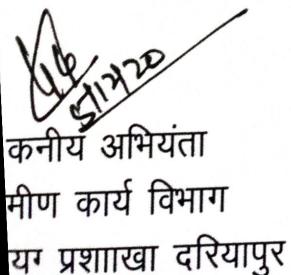 कनीय अभियंता
मीण कार्य विभाग
य॰ प्रशााखा दरियापुर